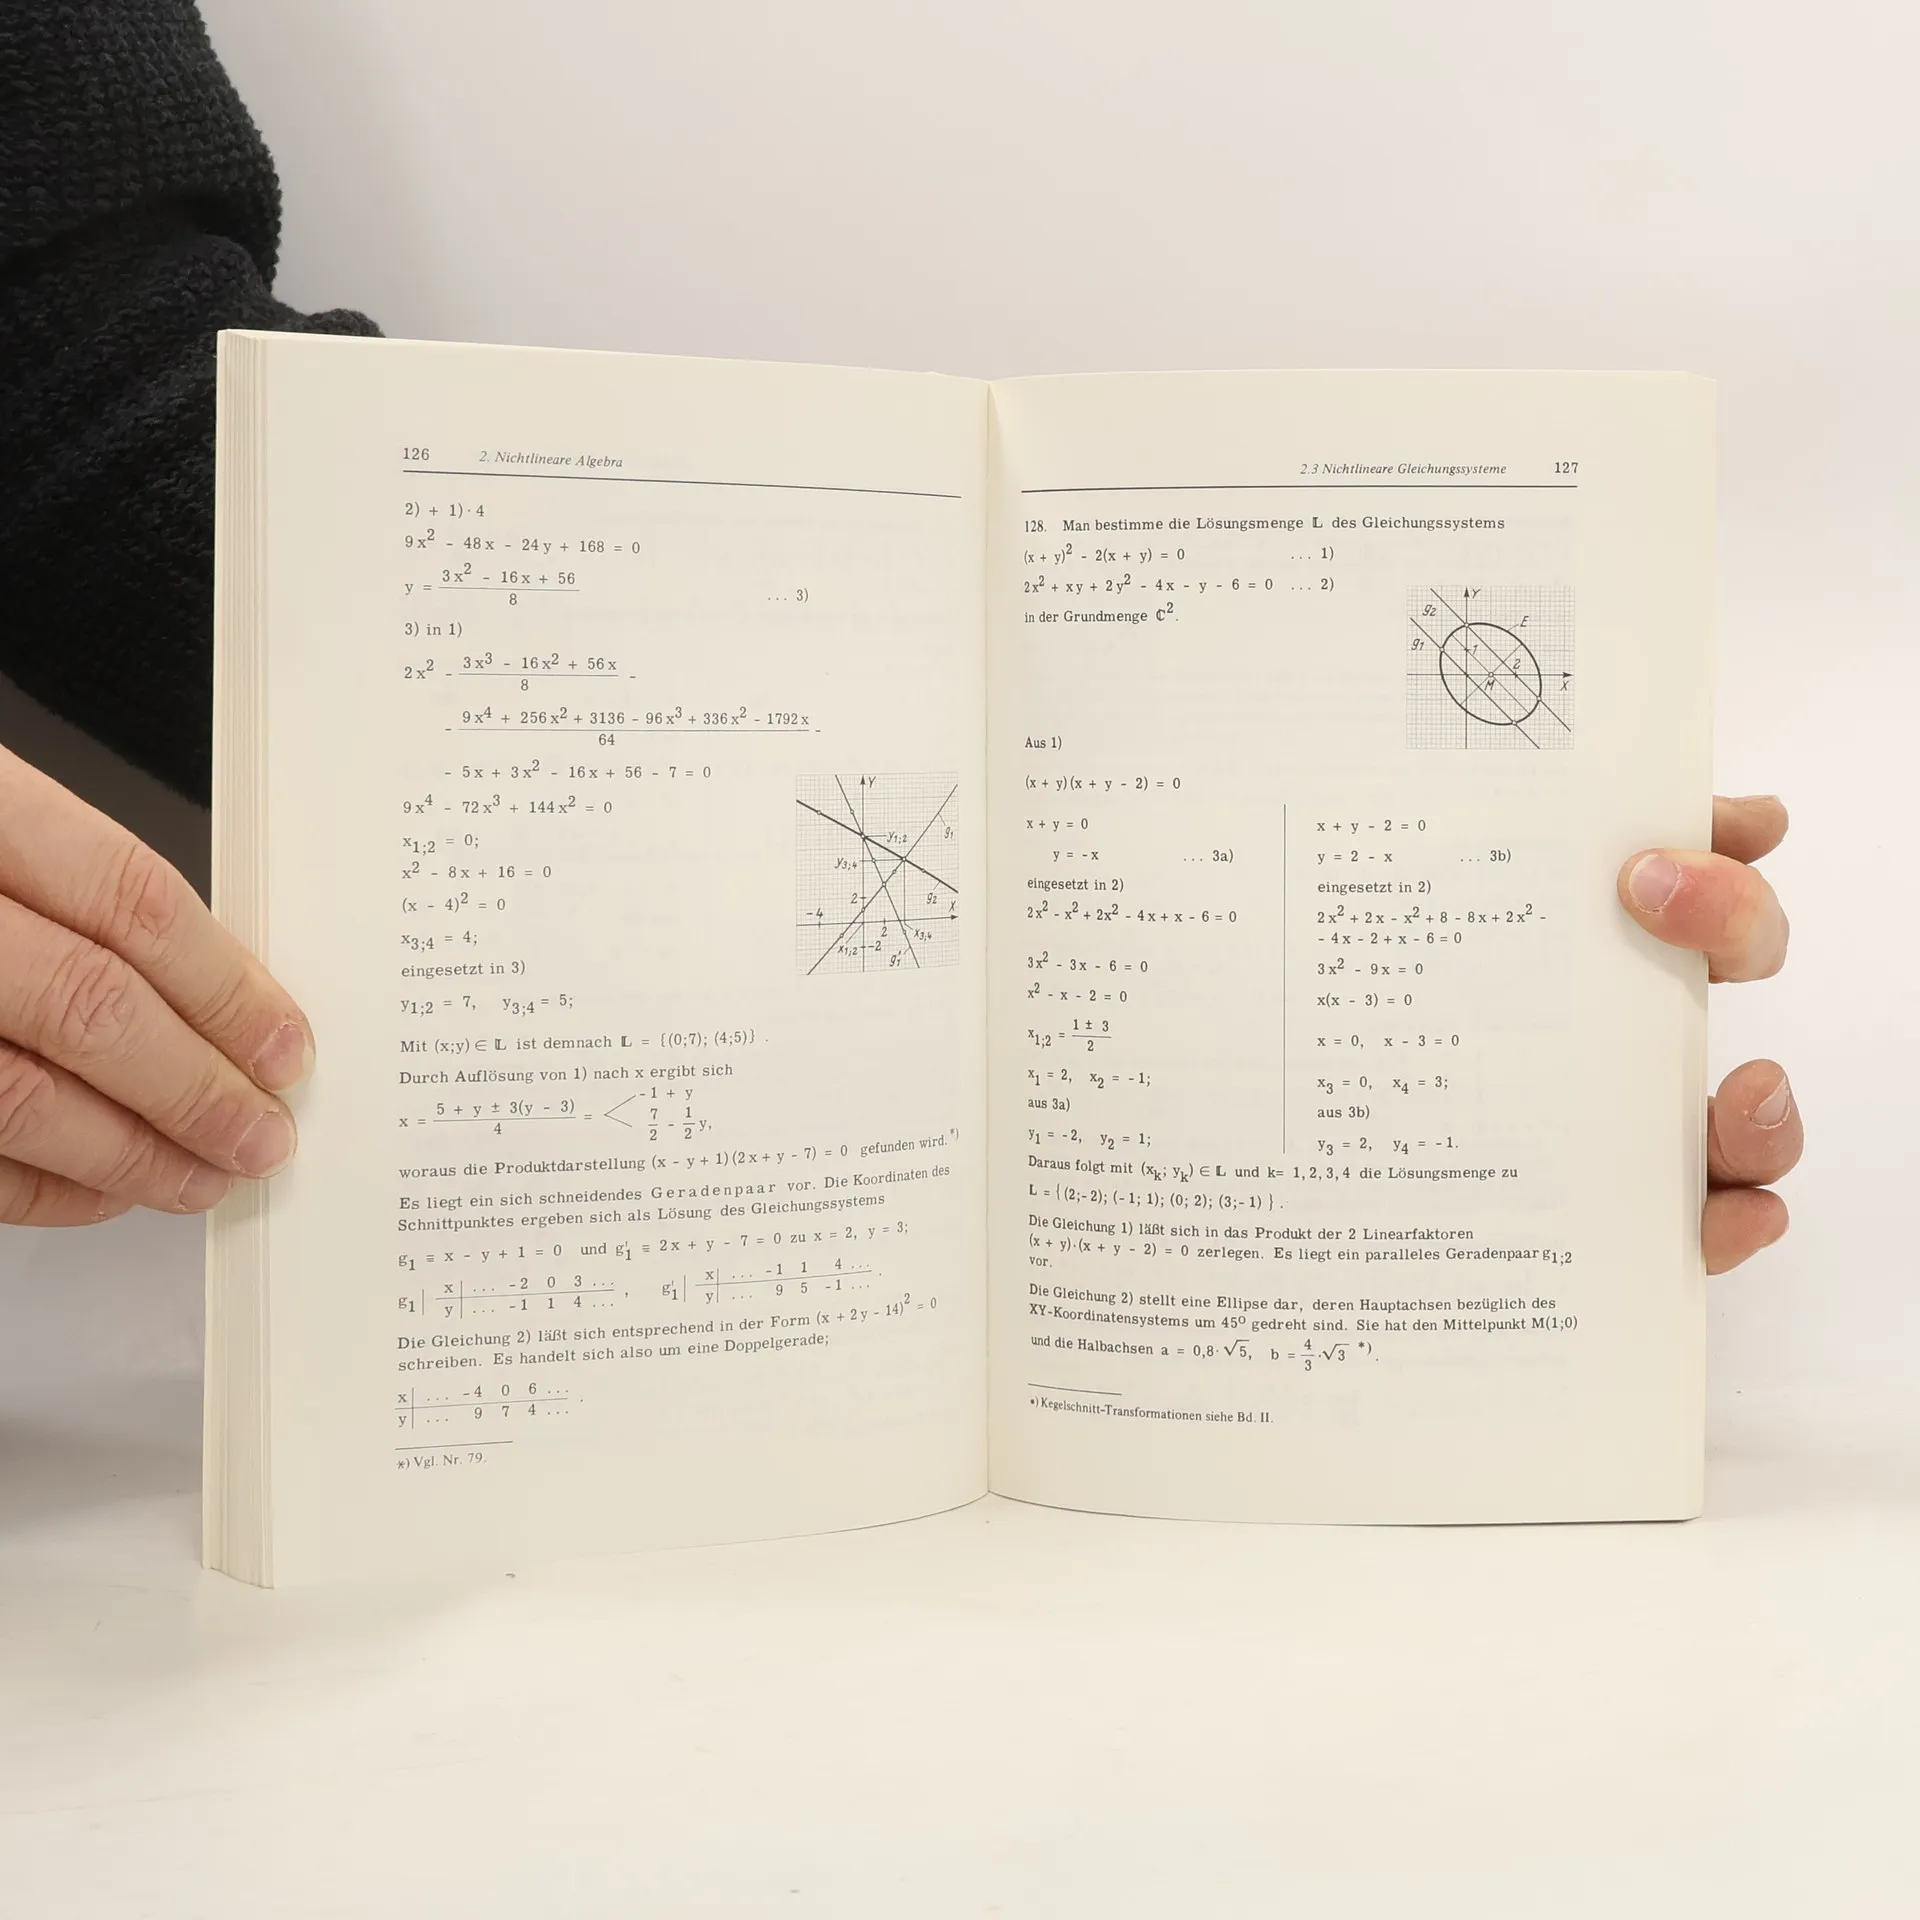 126 2. Nichtlineare Algebra
2) + 1)·4
9x² - 48x - 24y + 168 = 0
y = (3x² - 16x + 56)/8 ... 3)
3) in 1)
2x² - (3x³ - 16x² + 56x)/8 -
- (9x⁴ + 256x² + 3136 - 96x³ + 336x² - 1792x)/64 -
- 5x + 3x² - 16x + 56 - 7 = 0
9x⁴ - 72x³ + 144x² = 0
x₁;₂ = 0;
x² - 8x + 16 = 0
(x - 4)² = 0
x₃;₄ = 4;
eingesetzt in 3)
y₁;₂ = 7, y₃;₄ = 5;
Y
y₁;₂
g₁
y₃;₄
2
g₂
X
-4
2
x₃;₄
x₁;₂
-2
g₁'
Mit (x;y) ∈ 𝕃 ist demnach 𝕃 = {(0;7); (4;5)} .
Durch Auflösung von 1) nach x ergibt sich
x = (5 + y ± 3(y - 3))/4 = < -1 + y
7/2 - 1/2 y,
woraus die Produktdarstellung (x - y + 1)(2x + y - 7) = 0 gefunden wird.*)
Es liegt ein sich schneidendes Geradenpaar vor. Die Koordinaten des
Schnittpunktes ergeben sich als Lösung des Gleichungssystems
g₁ ≡ x - y + 1 = 0 und g₁' ≡ 2x + y - 7 = 0 zu x = 2, y = 3;
g₁ | x | ... -2 0 3 ... , g₁' | x | ... -1 1 4 ... .
y | ... -1 1 4 ... y | ... 9 5 -1 ...
Die Gleichung 2) läßt sich entsprechend in der Form (x + 2y - 14)² = 0
schreiben. Es handelt sich also um eine Doppelgerade;
x | ... -4 0 6 ... .
y | ... 9 7 4 ...
*) Vgl. Nr. 79.
2.3 Nichtlineare Gleichungssysteme 127
128. Man bestimme die Lösungsmenge 𝕃 des Gleichungssystems
(x + y)² - 2(x + y) = 0 ... 1)
2x² + xy + 2y² - 4x - y - 6 = 0 ... 2)
in der Grundmenge ℂ².
Y
g₂
E
g₁
1
2
M
X
Aus 1)
(x + y)(x + y - 2) = 0
x + y = 0
y = -x ... 3a)
eingesetzt in 2)
2x² - x² + 2x² - 4x + x - 6 = 0
3x² - 3x - 6 = 0
x² - x - 2 = 0
x₁;₂ = (1 ± 3)/2
x₁ = 2, x₂ = -1;
aus 3a)
y₁ = -2, y₂ = 1;
x + y - 2 = 0
y = 2 - x ... 3b)
eingesetzt in 2)
2x² + 2x - x² + 8 - 8x + 2x² -
- 4x - 2 + x - 6 = 0
3x² - 9x = 0
x(x - 3) = 0
x = 0, x - 3 = 0
x₃ = 0, x₄ = 3;
aus 3b)
y₃ = 2, y₄ = -1.
Daraus folgt mit (xₖ; yₖ) ∈ 𝕃 und k= 1,2,3,4 die Lösungsmenge zu
𝕃 = {(2;-2); (-1; 1); (0; 2); (3;-1) } .
Die Gleichung 1) läßt sich in das Produkt der 2 Linearfaktoren
(x + y)·(x + y - 2) = 0 zerlegen. Es liegt ein paralleles Geradenpaar g₁;₂
vor.
Die Gleichung 2) stellt eine Ellipse dar, deren Hauptachsen bezüglich des
XY-Koordinatensystems um 45° gedreht sind. Sie hat den Mittelpunkt M(1;0)
und die Halbachsen a = 0,8·√5, b = 4/3·√3 *).
*) Kegelschnitt-Transformationen siehe Bd. II.